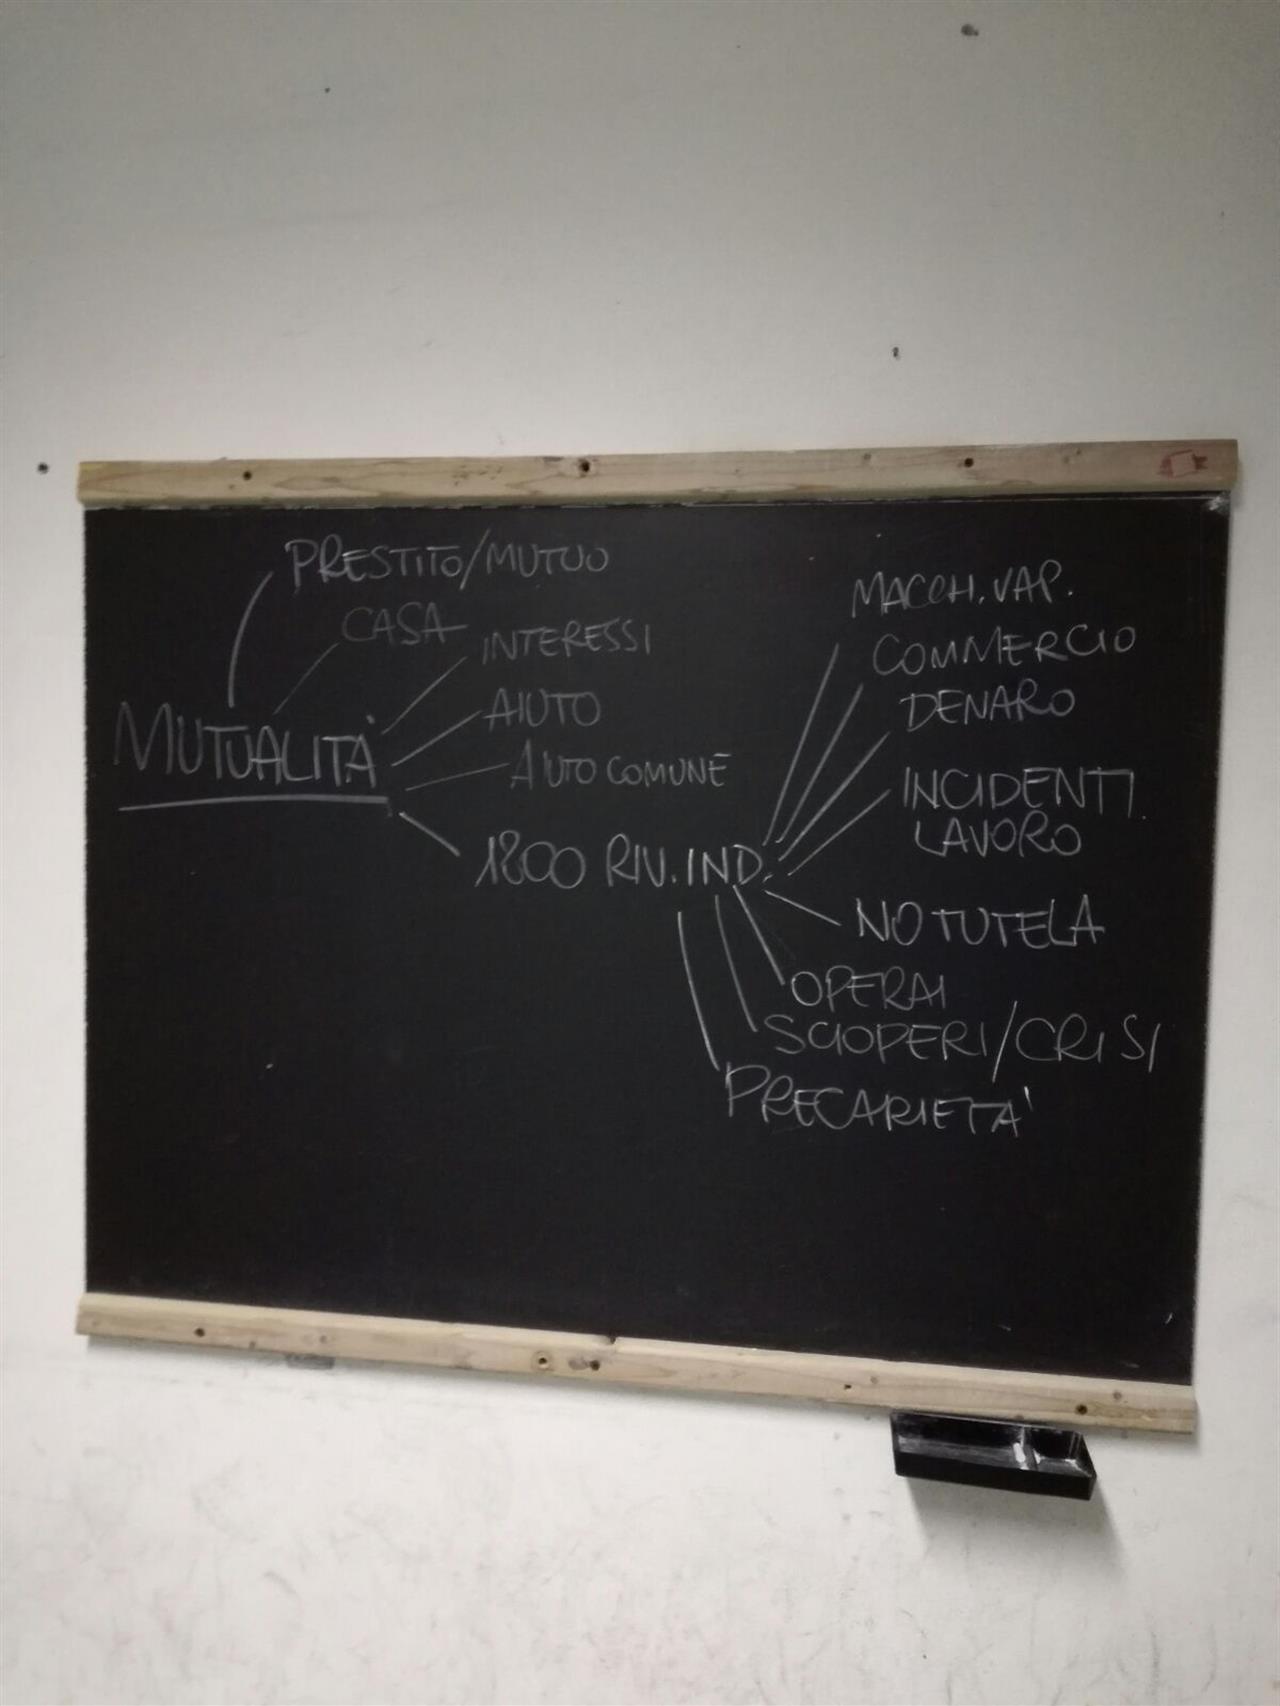 PRESTITO/MUTUO
CASA
INTERESSI
MUTUALITÀ
AIUTO
AIUTO COMUNE
1800 RIV. IND.
MACCH. VAP.
COMMERCIO
DENARO
INCIDENTI
LAVORO
NO TUTELA
OPERAI
SCIOPERI/CRISI
PRECARIETA'